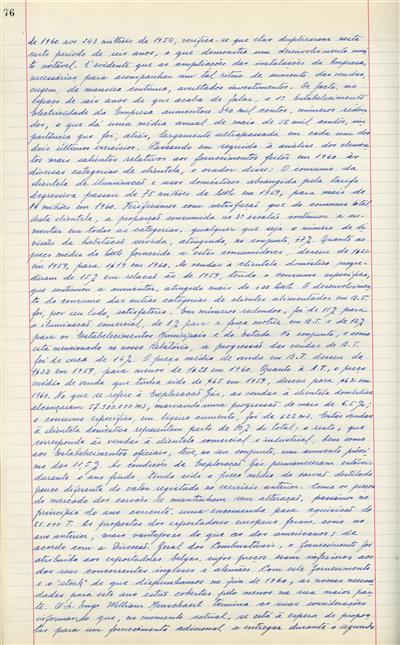 76
de 1960 aos 243 milhões de 1954, verifica-se que elas duplicaram neste
curto período de seis anos, o que demonstra um desenvolvimento mui-
to notável. É evidente que as ampliações das instalações da Empresa,
necessárias para acompanhar um tal ritmo de aumento das vendas,
exigem, de maneira contínua, avultados investimentos. De facto, no
espaço de seis anos de que acaba de falar, o 1º Estabelecimento
Electricidade da Empresa aumentou 340 mil contos, números redon-
dos, o que dá uma média anual de mais de 56 mil contos, im-
portância que foi, aliás, largamente ultrapassada em cada um dos
dois últimos exercícios. Passando em seguida à análise dos elemen-
tos mais salientes relativos aos fornecimentos feitos em 1960 às
diversas categorias de clientela, o orador disse: O consumo da
clientela de iluminação e usos domésticos abrangida pela tarifa
degressiva passou de 75 milhões de kWh em 1959, para mais de
milhões em 1960. Verificamos com satisfação que do consumo total
desta clientela, a proporção consumida no 3º escalão continuou a au-
mentar em todas as categorias, qualquer que seja o número de di-
visões da habitação servida, atingindo, no conjunto, Quanto ao
preço médio do kWh fornecido a estes consumidores, desceu de
em 1959, para em 1960. As vendas à clientela doméstica progre-
diram de 15% em relação às de 1959, tendo o consumo específico,
que continuou a aumentar, atingido mais de 600 kWh. O desenvolvimen-
to do consumo das outras categorias de clientes alimentados em B.T.
foi, por seu lado, satisfatório. Em números redondos, foi de 11% para
a iluminação comercial, de 9% para a força motriz em B.T. e de 12%
para os Estabelecimentos Municipais e do Estado. No conjunto e como
está mencionado no nosso Relatório, a progressão das vendas de B.T.
foi de cerca de 14%. O preço médio de venda em B.T. desceu de
1$632 em 1959, para menos de 1$628 em 1960. Quanto à A.T., o preço
médio de venda que tinha sido de $465 em 1959, desceu para $462 em
1960. No que se refere à Exploração Gás, as vendas à clientela doméstica
alcançaram 57.900.000 m3, marcando uma progressão de mais de 6,5%;
o consumo específico, em ligeiro aumento, foi de 622 m3. Estas vendas
à clientela doméstica representam perto de 80% do total; o resto, que
corresponde às vendas à clientela comercial e industrial, bem como
aos Estabelecimentos oficiais, teve, no seu conjunto, um aumento próxi-
mo dos 11,5%. As condições da Exploração Gás permaneceram estáveis
durante o ano findo, tendo sido o preço médio do carvão destilado
pouco diferente do valor registado no exercício anterior. Como os preços
do mercado dos carvões se mantinham sem alteração, passámos no
princípio do ano corrente uma encomenda para aquisição de
25.000 T. As propostas dos exportadores europeus foram, como no
ano anterior, mais vantajosas do que as dos americanos; de
acordo com a Direcção Geral dos Combustíveis, o fornecimento foi
atribuído aos exportadores belgas, cujos preços eram inferiores aos
dos seus concorrentes ingleses e alemães. Com este fornecimento
e o "stock" de que dispunhamos no fim de 1960, as nossas necessi-
dades para este ano estão cobertas pelo menos na sua maior par-
te. O Sr. Engº William termina as suas considerações
informando que, no momento actual, se está à espera de propos-
tas para um fornecimento adicional a entregar durante o segundo